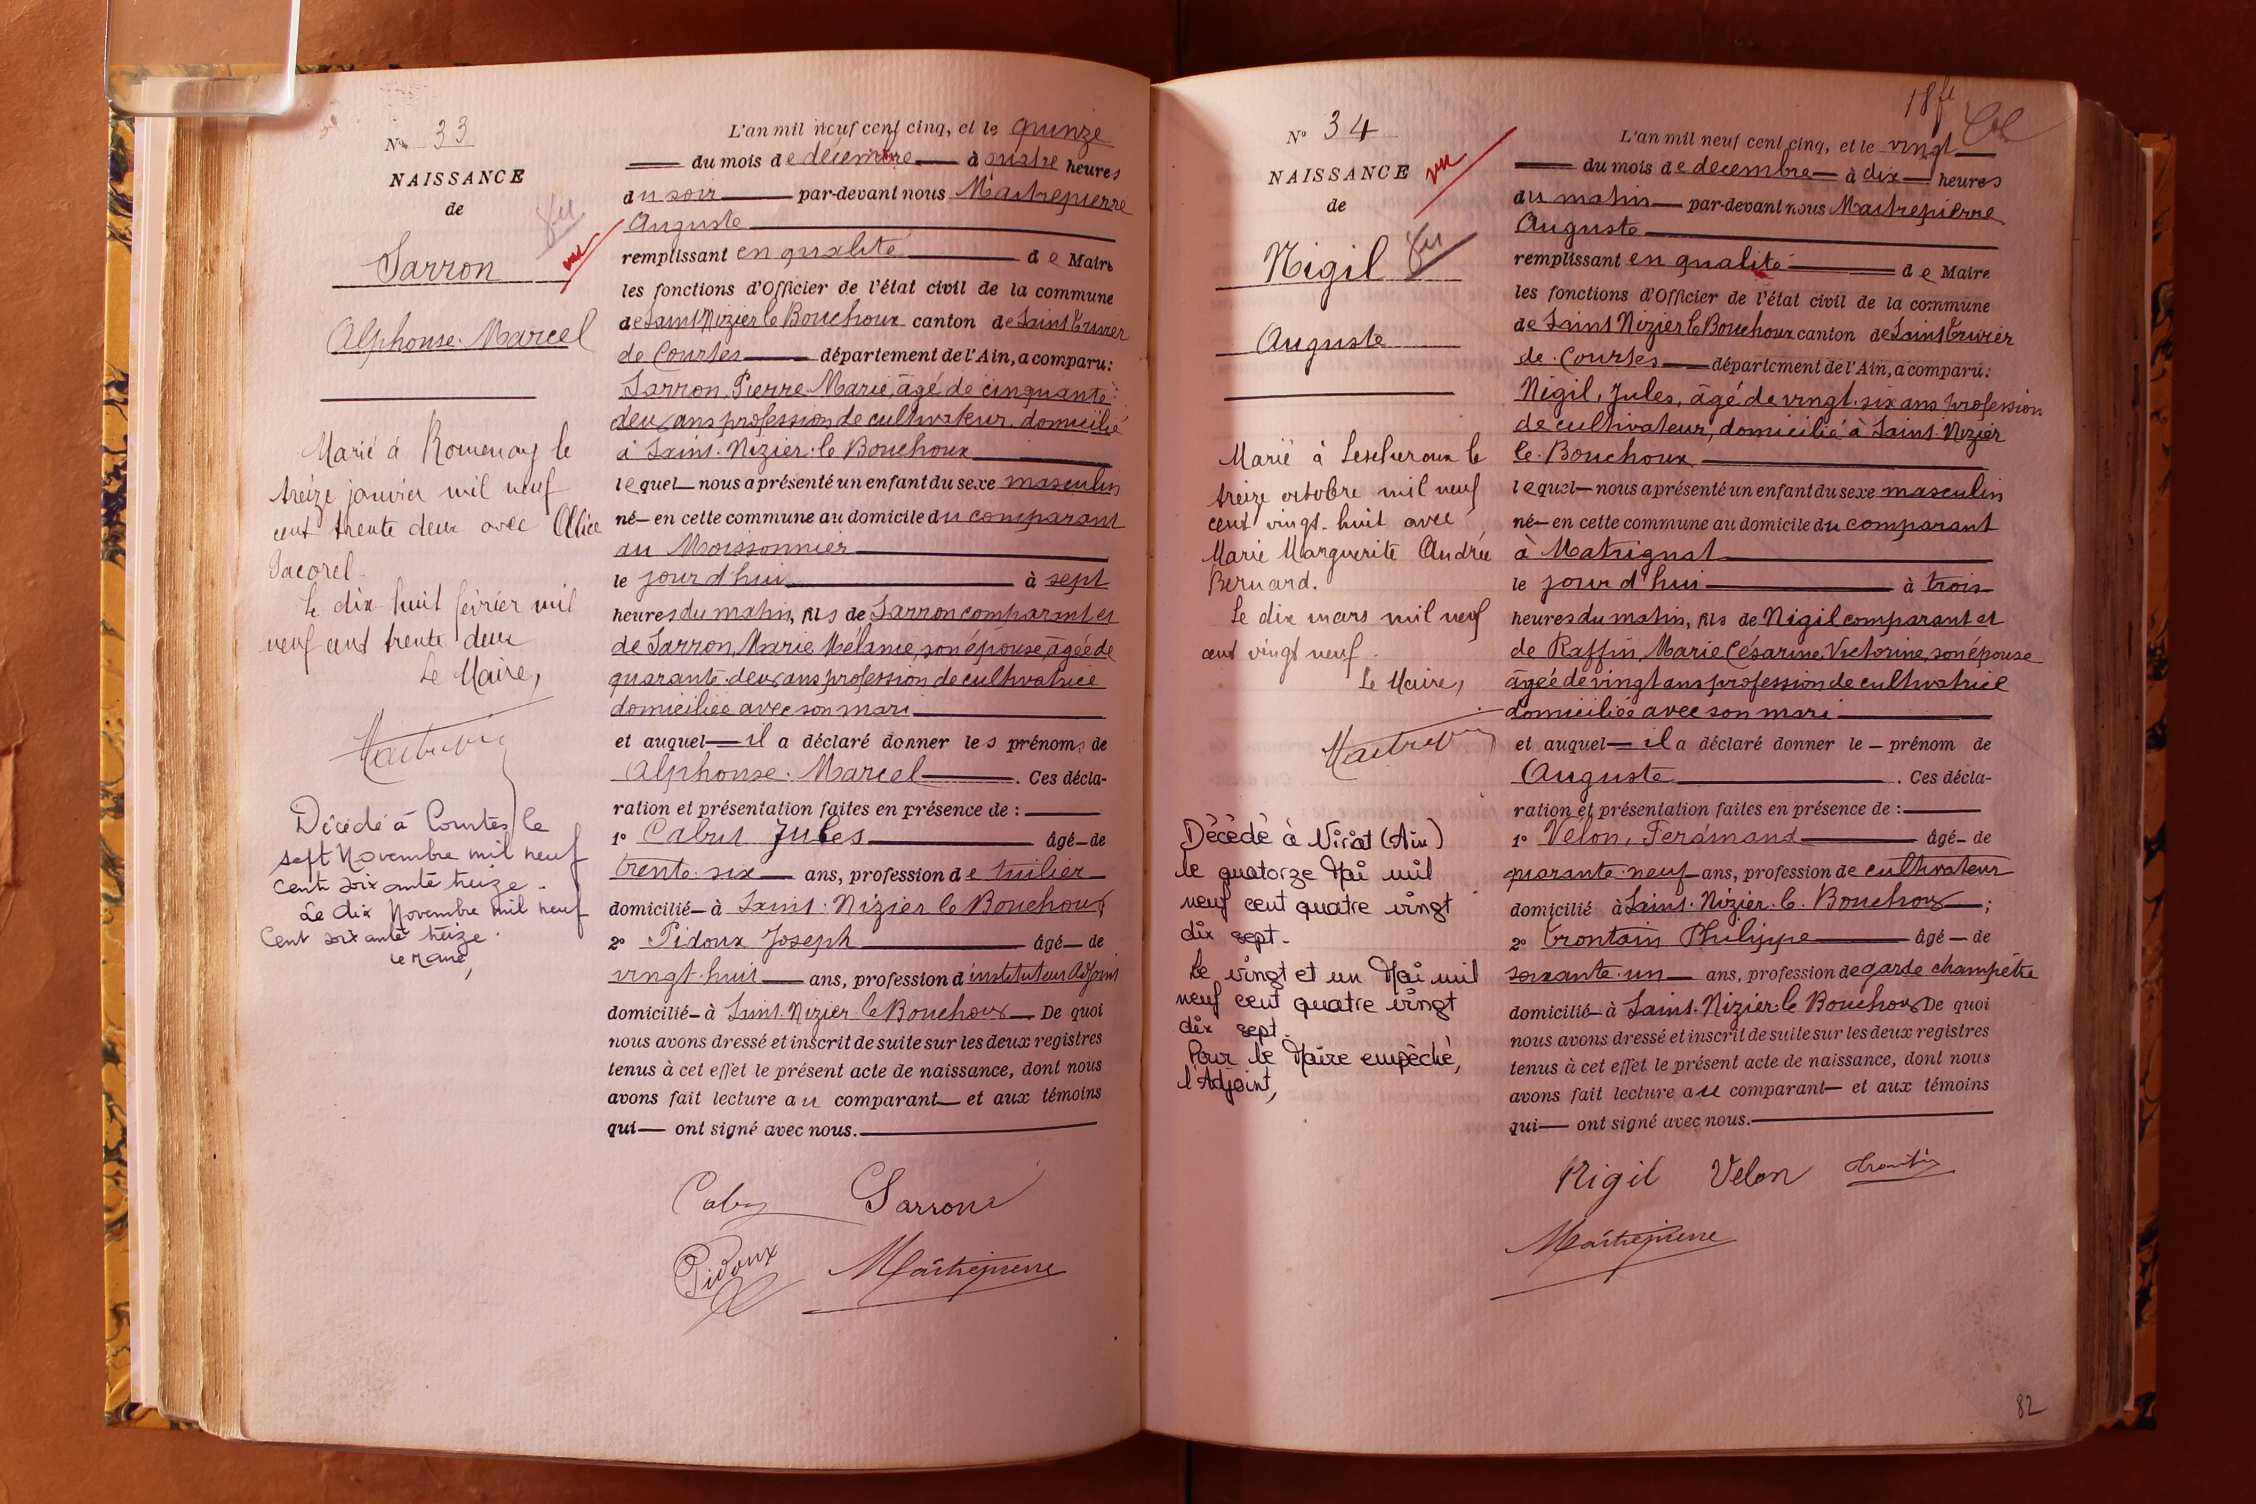 N° 33
NAISSANCE
de
Sarron
Alphonse Marcel
Marié à Romenay le
treize janvier mil neuf
cent trente deux avec Alice
Pacorel
Le dix huit février mil
neuf cent trente deux
Le Maire,
Décédé à Courtes le
sept Novembre mil neuf
cent soixante treize.
Le dix Novembre mil neuf
cent soixante treize.
le Maire,
L'an mil neuf cent cinq, et le quinze
du mois de décembre à quatre heures
du soir par-devant nous Maitrepierre
Auguste
remplissant en qualité de Maire
les fonctions d'Officier de l'état civil de la commune
de Saint Nizier le Bouchoux canton de Saint Trivier
de Courtes département de l'Ain, a comparu:
Sarron, Pierre Marie, âgé de cinquante
deux ans profession de cultivateur, domicilié
à Saint-Nizier-le Bouchoux
lequel nous a présenté un enfant du sexe masculin
né en cette commune au domicile du comparant
au Moissonnier
le jour d'hui à sept
heures du matin, fils de Sarron comparant et
de Sarron, Marie Mélanie, son épouse, âgée de
quarante-deux ans profession de cultivatrice
domiciliée avec son mari
et auquel il a déclaré donner les prénoms de
Alphonse. Marcel. Ces décla-
ration et présentation faites en présence de :
1° Cabut Jules âgé de
trente-six ans, profession de tuilier
domicilié à Saint-Nizier le Bouchoux
2° Pidoux Joseph âgé de
vingt-huit ans, profession d'instituteur adjoint
domicilié à Saint-Nizier-le Bouchoux De quoi
nous avons dressé et inscrit de suite sur les deux registres
tenus à cet effet le présent acte de naissance, dont nous
avons fait lecture au comparant et aux témoins
qui ont signé avec nous.
Sarron
Pidoux Maîtrepierre
18 fe
N° 34
NAISSANCE
de
vu
Nigil
Auguste
Marié à Lescheroux le
treize octobre mil neuf
cent vingt-huit avec
Marie Marguerite Andrée
Bernard.
Le dix mars mil neuf
cent vingt neuf.
Le Maire,
Décédé à Viriat (Ain)
le quatorze Mai mil
neuf cent quatre vingt
dix sept.
Le vingt et un Mai mil
neuf cent quatre vingt
dix sept.
Pour le Maire empêché,
l'Adjoint,
L'an mil neuf cent cinq, et le vingt
du mois de decembre à dix heures
du matin par-devant nous Maitrepierre
Auguste
remplissant en qualité de Maire
les fonctions d'Officier de l'état civil de la commune
de Saint Nizier le Bouchoux canton de Saint Trivier
de Courtes département de l'Ain, a comparu:
Nigil, Jules, âgé de vingt-six ans profession
de cultivateur, domicilié à Saint-Nizier
le Bouchoux
lequel nous a présenté un enfant du sexe masculin
né en cette commune au domicile du comparant
à Matrignat
le jour d'hui à trois
heures du matin, fils de Nigil comparant et
de Raffin, Marie Césarine Victorine, son épouse
âgée de vingt ans profession de cultivatrice
domiciliée avec son mari
et auquel il a déclaré donner le prénom de
Auguste. Ces décla-
ration et présentation faites en présence de :
1° Velon, Ferdinand âgé de
quarante-neuf ans, profession de cultivateur
domicilié à Saint-Nizier-le-Bouchoux;
2° Trontain Philippe âgé de
soixante-un ans, profession de garde champêtre
domicilié à Saint-Nizier-le Bouchoux De quoi
nous avons dressé et inscrit de suite sur les deux registres
tenus à cet effet le présent acte de naissance, dont nous
avons fait lecture au comparant et aux témoins
qui ont signé avec nous.
Nigil Velon
Maîtrepierre
82